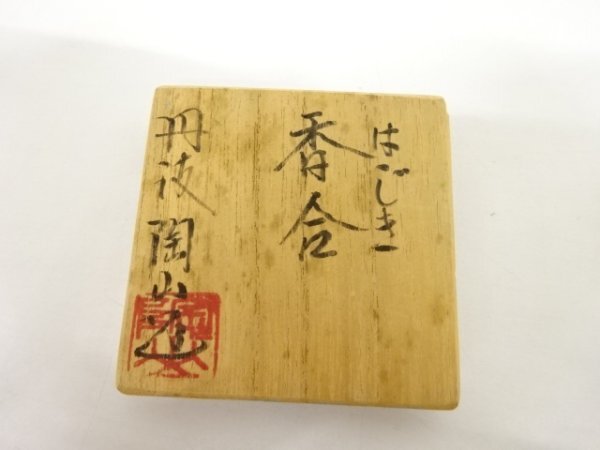 はじき
香合
丹波 陶山造